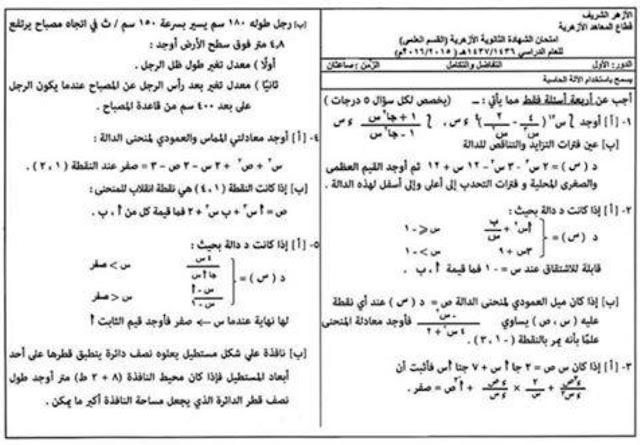 الأزهر الشريف
قطاع المعاهد الأزهرية
امتحان الشهادة الثانوية الأزهرية (القسم العلمى)
للعام الدراسي ١٤٣٦/١٤٣٧هـ (٢٠١٥/٢٠١٦م)
الدور: الأول التفاضل والتكامل الزمن: ساعتان
يسمح باستخدام الآلة الحاسبة
أجب عن أربعة أسئلة فقط مما يأتي : ـ (يخصص لكل سؤال ٥ درجات)
١- [أ] أوجد
[ب] عين فترات التزايد والتناقص للدالة
د (س) = ٢ س٣ - ٣ س٢ - ١٢ س + ١٢ ثم أوجد القيم العظمى
والصغرى المحلية و فترات التحدب إلى أعلى وإلى أسفل لهذه الدالة .
٢- [أ] إذا كانت د دالة بحيث :
د (س) =
أس٢ + ب/س س ≥ - ١
٣س + ٩ س > - ١
قابلة للاشتقاق عند س = - ١ فما قيمة أ ، ب .
[ب] إذا كان ميل العمودي لمنحنى الدالة ص = د (س) عند أي نقطة
عليه (س ، ص) يساوي فأوجد معادلة المنحنى
علمًا بأنه يمر بالنقطة (- ١ ، ٣) .
٣- [أ] إذا كان س ص = ٢ جا أ س + ٧ جتا أ س فأثبت أن
ء٢ص/ء س٢ + ٢/س × ء ص/ء س + أ٢ ص = صفر .
(ب) رجل طوله ١٨٠ سم يسير بسرعة ١٥٠ سم / ث في اتجاه مصباح يرتفع
٤,٨ متر فوق سطح الأرض أوجد :
أولًا ) معدل تغير طول ظل الرجل .
ثانيًا ) معدل تغير بعد رأس الرجل عن المصباح عندما يكون الرجل
على بعد ٤٠٠ سم من قاعدة المصباح .
٤- [أ] أوجد معادلتي المماس والعمودي لمنحنى الدالة :
س٢ + ص٢ + ٢ س - ٢ ص - ٣ = صفر عند النقطة (١ ، ٢) .
[ب] إذا كانت النقطة (١ ، ٤) هي نقطة انقلاب للمنحنى :
ص = أ س٣ + ب س٢ + ٢ فما قيمة كل من أ ، ب .
٥- [أ] إذا كانت د دالة بحيث :
د (س) =
٤ س/جا أ س س < صفر
س - أ/س - ١ س > صفر
لها نهاية عندما س ← صفر فأوجد قيم الثابت أ
[ب] نافذة علي شكل مستطيل يعلوه نصف دائرة ينطبق قطرها على أحد
أبعاد المستطيل فإذا كان محيط النافذة (٨ + ٢ ط) متر أوجد طول
نصف قطر الدائرة الذي يجعل مساحة النافذة أكبر ما يمكن .